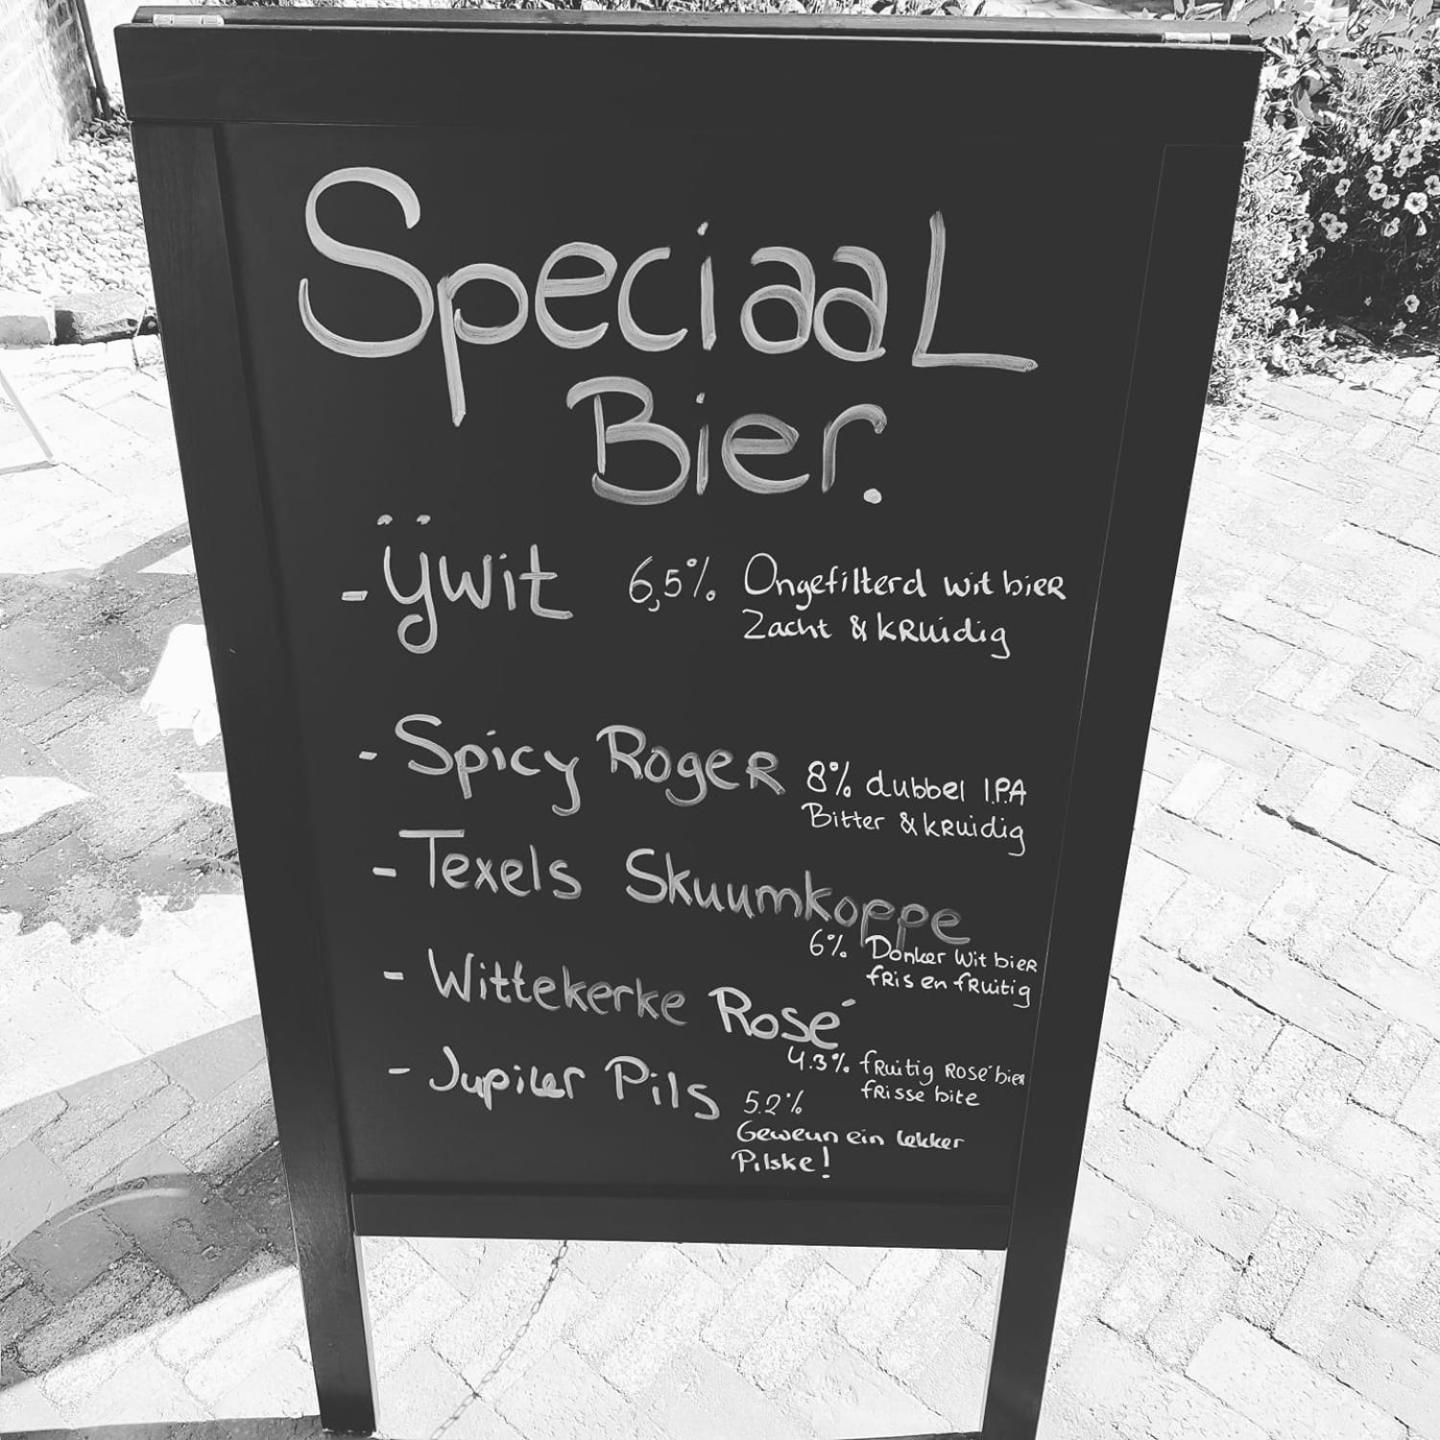 Speciaal
Bier.
- ÿwit 6,5% Ongefilterd wit bier
Zacht & kruidig
- Spicy Roger 8% dubbel I.P.A
Bitter & kruidig
- Texels Skuumkoppe
6% Donker wit bier
fris en fruitig
- Wittekerke Rosé
4.3% fruitig Rosé bier
frisse bite
- Jupiler Pils 5.2%
Geweun ein lekker
Pilske!